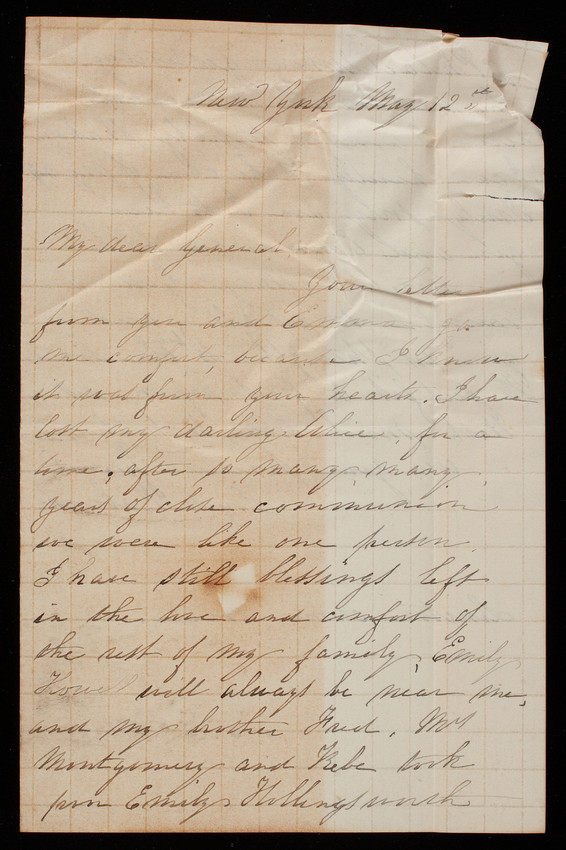 New York May 12th
My dear General.
Your letter
from you and Emma gave
me comfort, because I know
it was from your hearts. I have
lost my darling Alice, for a
time, after so many, many
years of close communion
we were like one person.
I have still blessings left
in the love and comfort of
the rest of my family, Emily
Howe will always be near me,
and my brother Fred. Mrs
Montgomery and Kebe took
poor Emily Hollingsworth